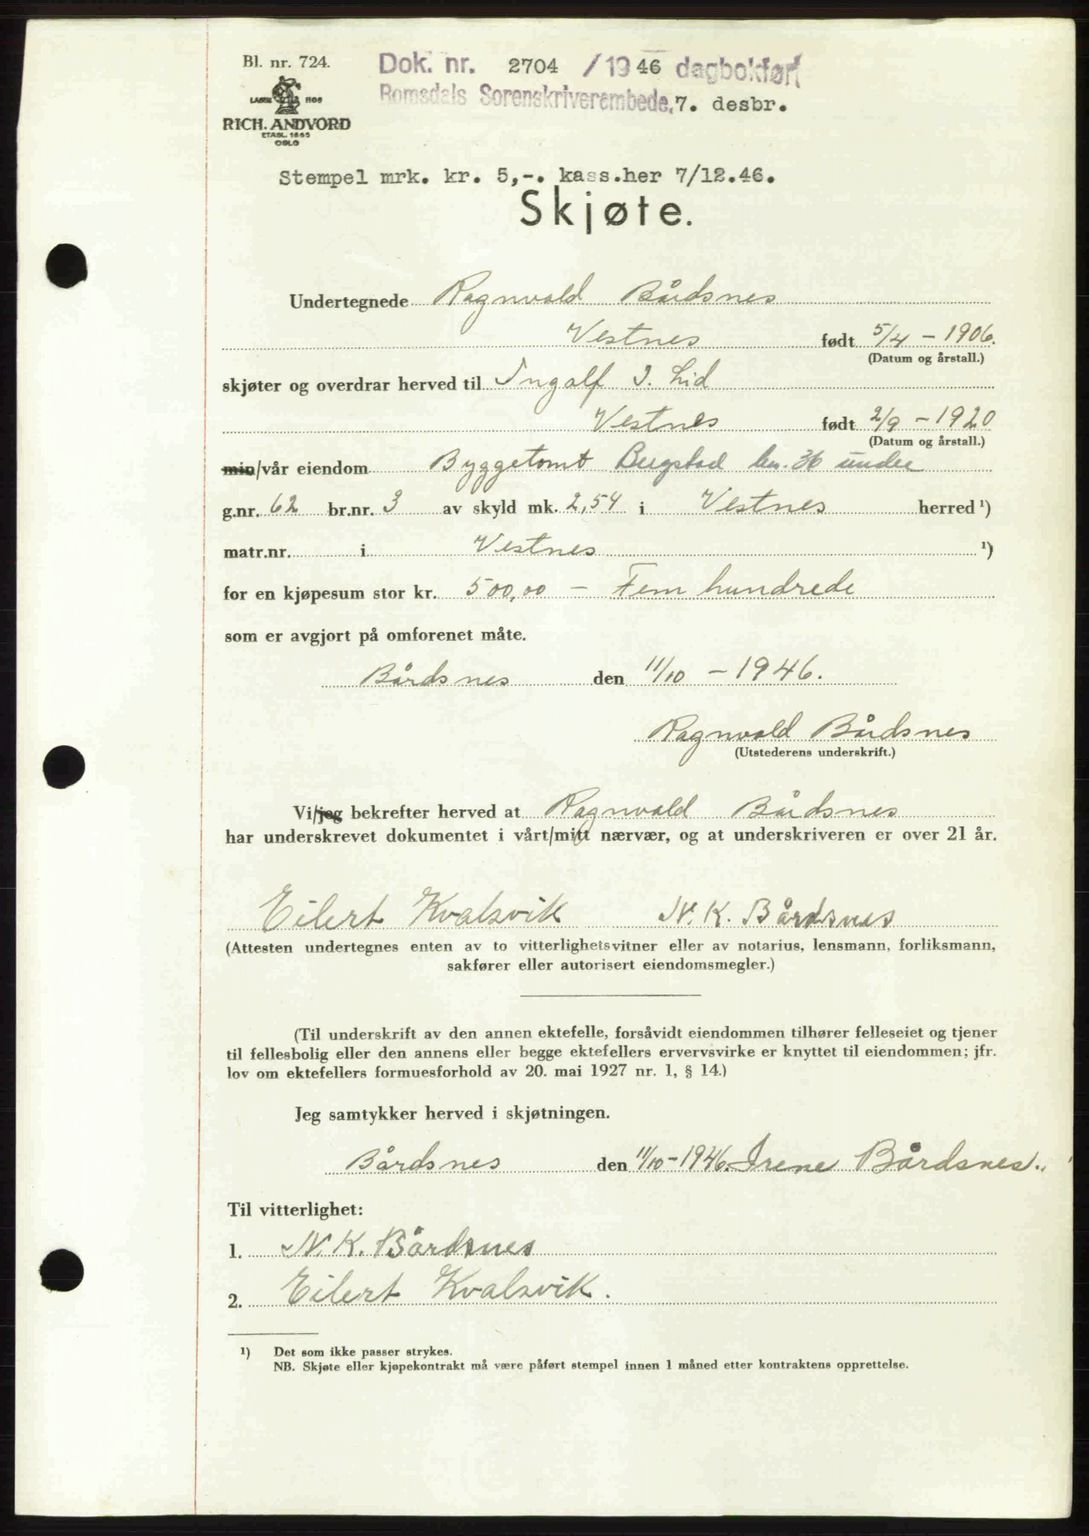 Bl. nr. 724.
Dok. nr. 2704 /19 46 dagbokført
LAGER HOS
Romsdals Sorenskriverembede, 7. desbr.
RICH. ANDVORD
ETABL. 1865
OSLO
Stempel mrk. kr. 5,-. kass.her 7/12.46.
Skjøte.
Undertegnede Ragnvald Bårdsnes
Vestnes født 5/4 - 1906.
(Datum og årstall.)
skjøter og overdrar herved til Ingolf I. Lid
Vestnes født 2/9 - 1920
(Datum og årstall.)
min/vår eiendom Byggetomt Bergstad bn. 36 under
g.nr. 62 br.nr. 3 av skyld mk. 2,54 i Vestnes herred ¹)
matr.nr. i Vestnes ¹)
for en kjøpesum stor kr. 500,00 - Fem hundrede
som er avgjort på omforenet måte.
Bårdsnes den 11/10 - 1946.
Ragnvald Bårdsnes
(Utstederens underskrift.)
Vi/jeg bekrefter herved at Ragnvald Bårdsnes
har underskrevet dokumentet i vårt/mitt nærvær, og at underskriveren er over 21 år.
Eilert Kvalsvik N. K. Bårdsnes
(Attesten undertegnes enten av to vitterlighetsvitner eller av notarius, lensmann, forliksmann,
sakfører eller autorisert eiendomsmegler.)
(Til underskrift av den annen ektefelle, forsåvidt eiendommen tilhører felleseiet og tjener
til fellesbolig eller den annens eller begge ektefellers ervervsvirke er knyttet til eiendommen; jfr.
lov om ektefellers formuesforhold av 20. mai 1927 nr. 1, § 14.)
Jeg samtykker herved i skjøtningen.
Bårdsnes den 11/10 - 1946. Irene Bårdsnes.
Til vitterlighet:
1. N. K. Bårdsnes
2. Eilert Kvalsvik.
¹) Det som ikke passer strykes.
NB. Skjøte eller kjøpekontrakt må være påført stempel innen 1 måned etter kontraktens opprettelse.